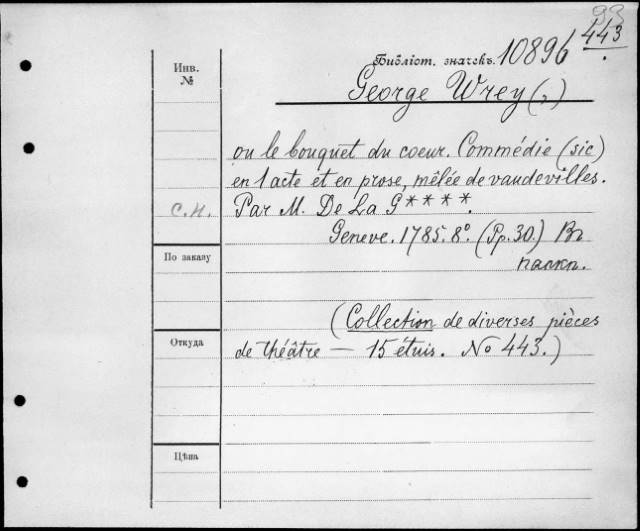 93
443
Библіот. значекъ. 10896
Инв.
№
George Wrey (,)
ou le bouquet du coeur. Commédie (sic)
en 1 acte et en prose, mêlée de vaudevilles.
С.Н. Par M. De La G****.
Geneve. 1785. 8º. (Pp. 30.) Въ
папкп.
По заказу
(Collection de diverses pièces
Откуда
de théâtre — 15 étuis. No 443.)
Цѣна